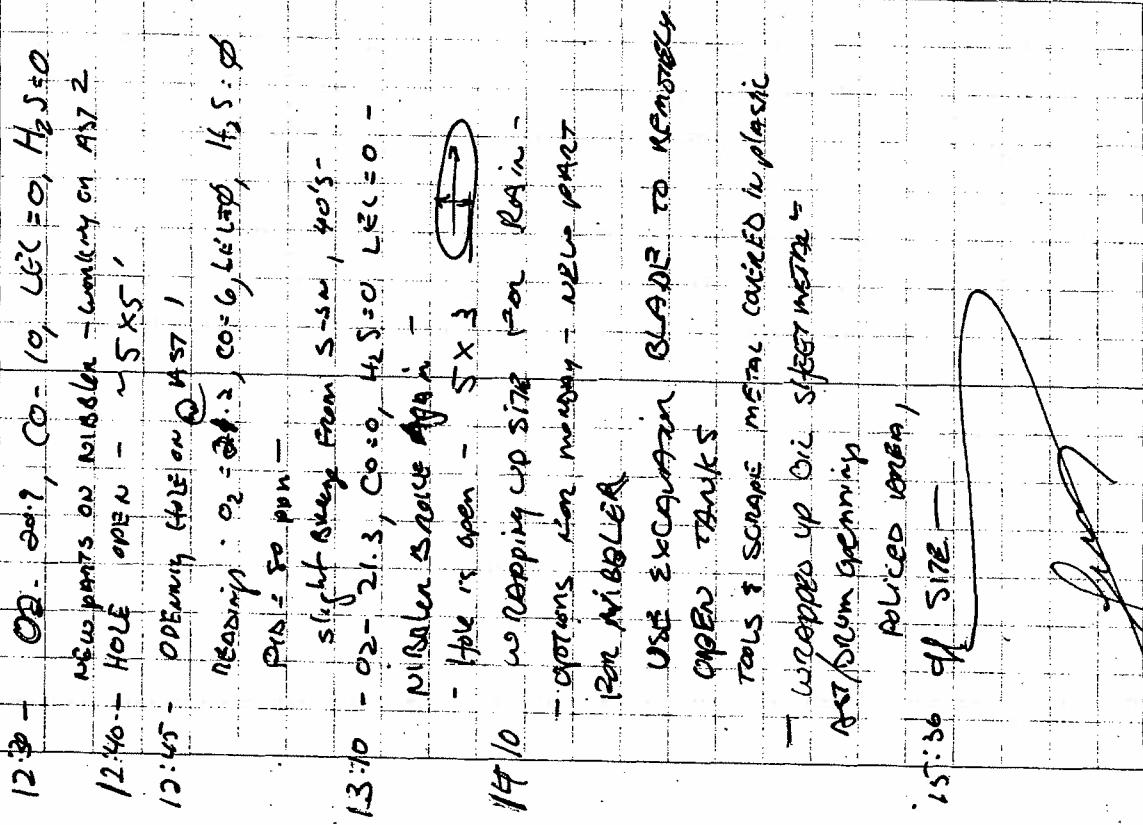 12:30 - O2 - 20.9, CO - 10, LEL = 0, H2S = 0
NEW PARTS ON NIBBLER - WORKING ON AST 2
12:40 - HOLE OPEN - ~5X5'
12:45 - OPENING HOLE ON AST 1
READINGS: O2 = .2, CO = 6, LEL = Ø, H2S: Ø
PID = 80 ppm -
slight Breeze From S-SW, 40's -
13:10 - O2 - 21.3, CO = 0, H2S = 0 LEL = 0 -
NIBBLER BROKE AGAIN -
- Hole is open - 5 X 3
1410 WRAPPING UP SITE FOR RAIN -
- OPTIONS FOR MONDAY - NEW PART
FOR NIBBLER
USE EXCAVATOR BLADE TO REMOTELY
OPEN TANKS
TOOLS & SCRAPE METAL COVERED in plastic
- WRAPPED UP OIL SHEET METAL -
AST/DRUM OPENINGS
POLICED AREA,
15:36 off SITE -